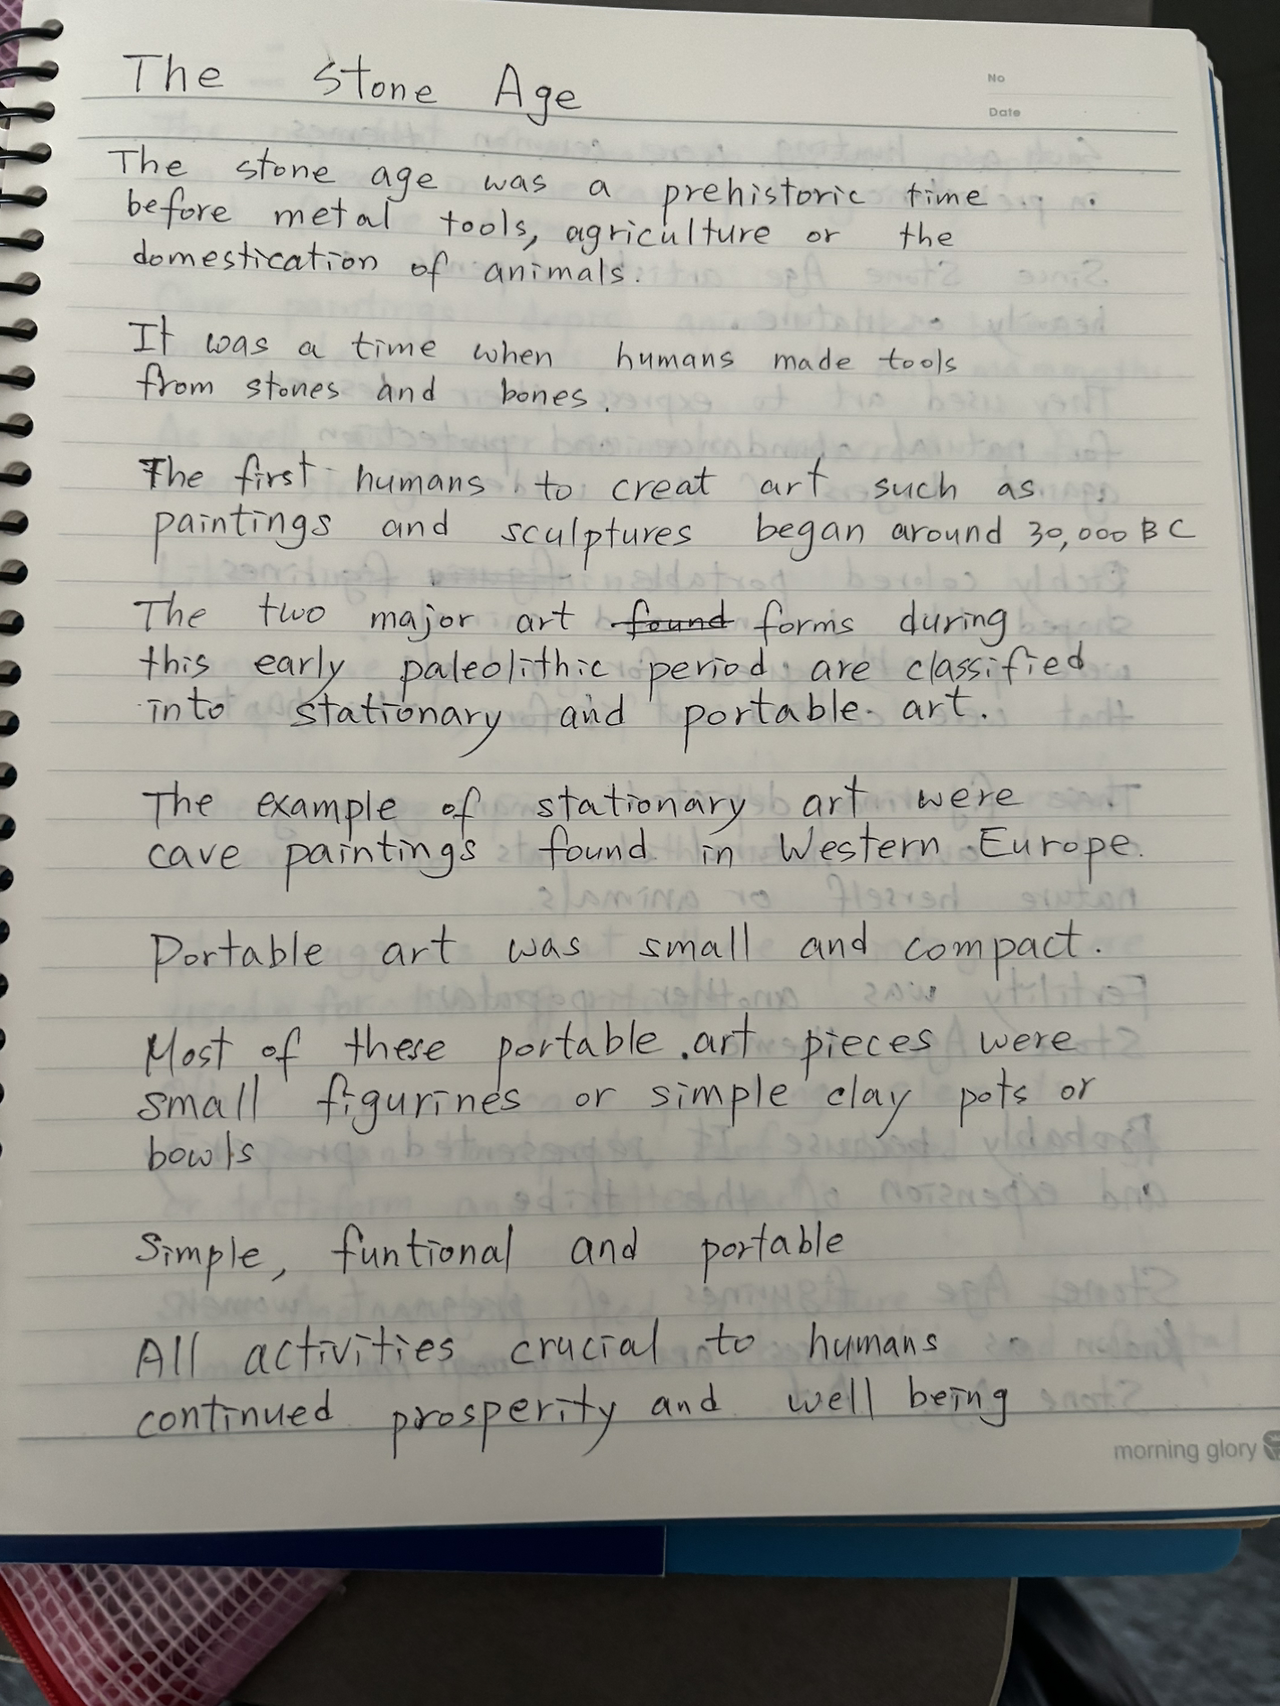 The Stone Age
No
Date
The stone age was a prehistoric time
before metal tools, agriculture or the
domestication of animals.
It was a time when humans made tools
from stones and bones.
The first humans to creat art such as
paintings and sculptures began around 30,000 BC
The two major art found forms during
this early paleolithic period are classified
into stationary and portable art.
The example of stationary art were
cave paintings found in Western Europe.
Portable art was small and compact.
Most of these portable art pieces were
small figurines or simple clay pots or
bowls
Simple, funtional and portable
All activities crucial to humans
continued prosperity and well being
morning glory